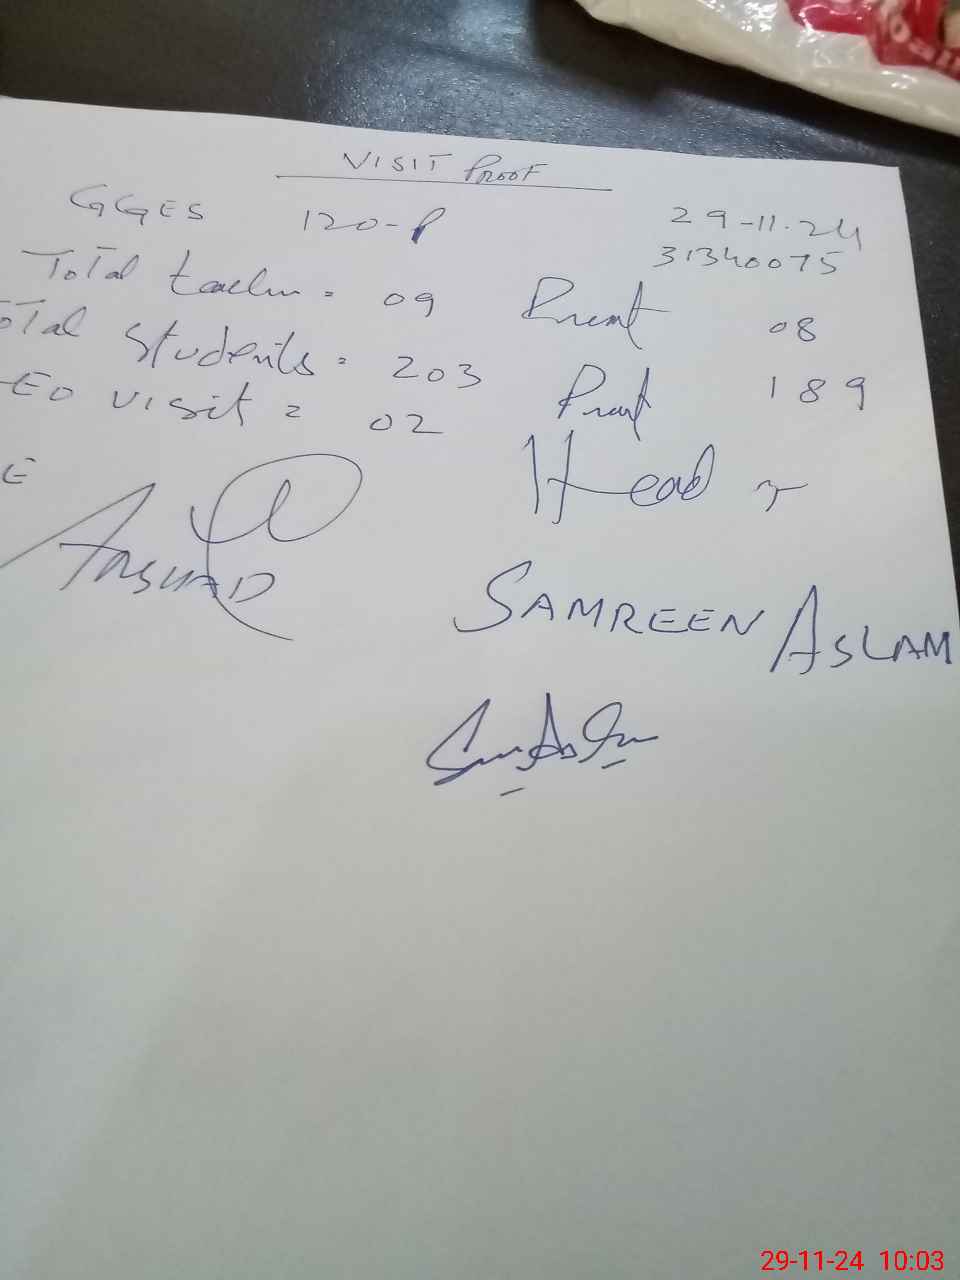 VISIT PROOF
GGES 120-P 29-11.24
31340075
Total teacher = 09 Present 08
Total Students = 203 Present 189
EO visit = 02
Head
E
ARSHAD
SAMREEN ASLAM
29-11-24 10:03